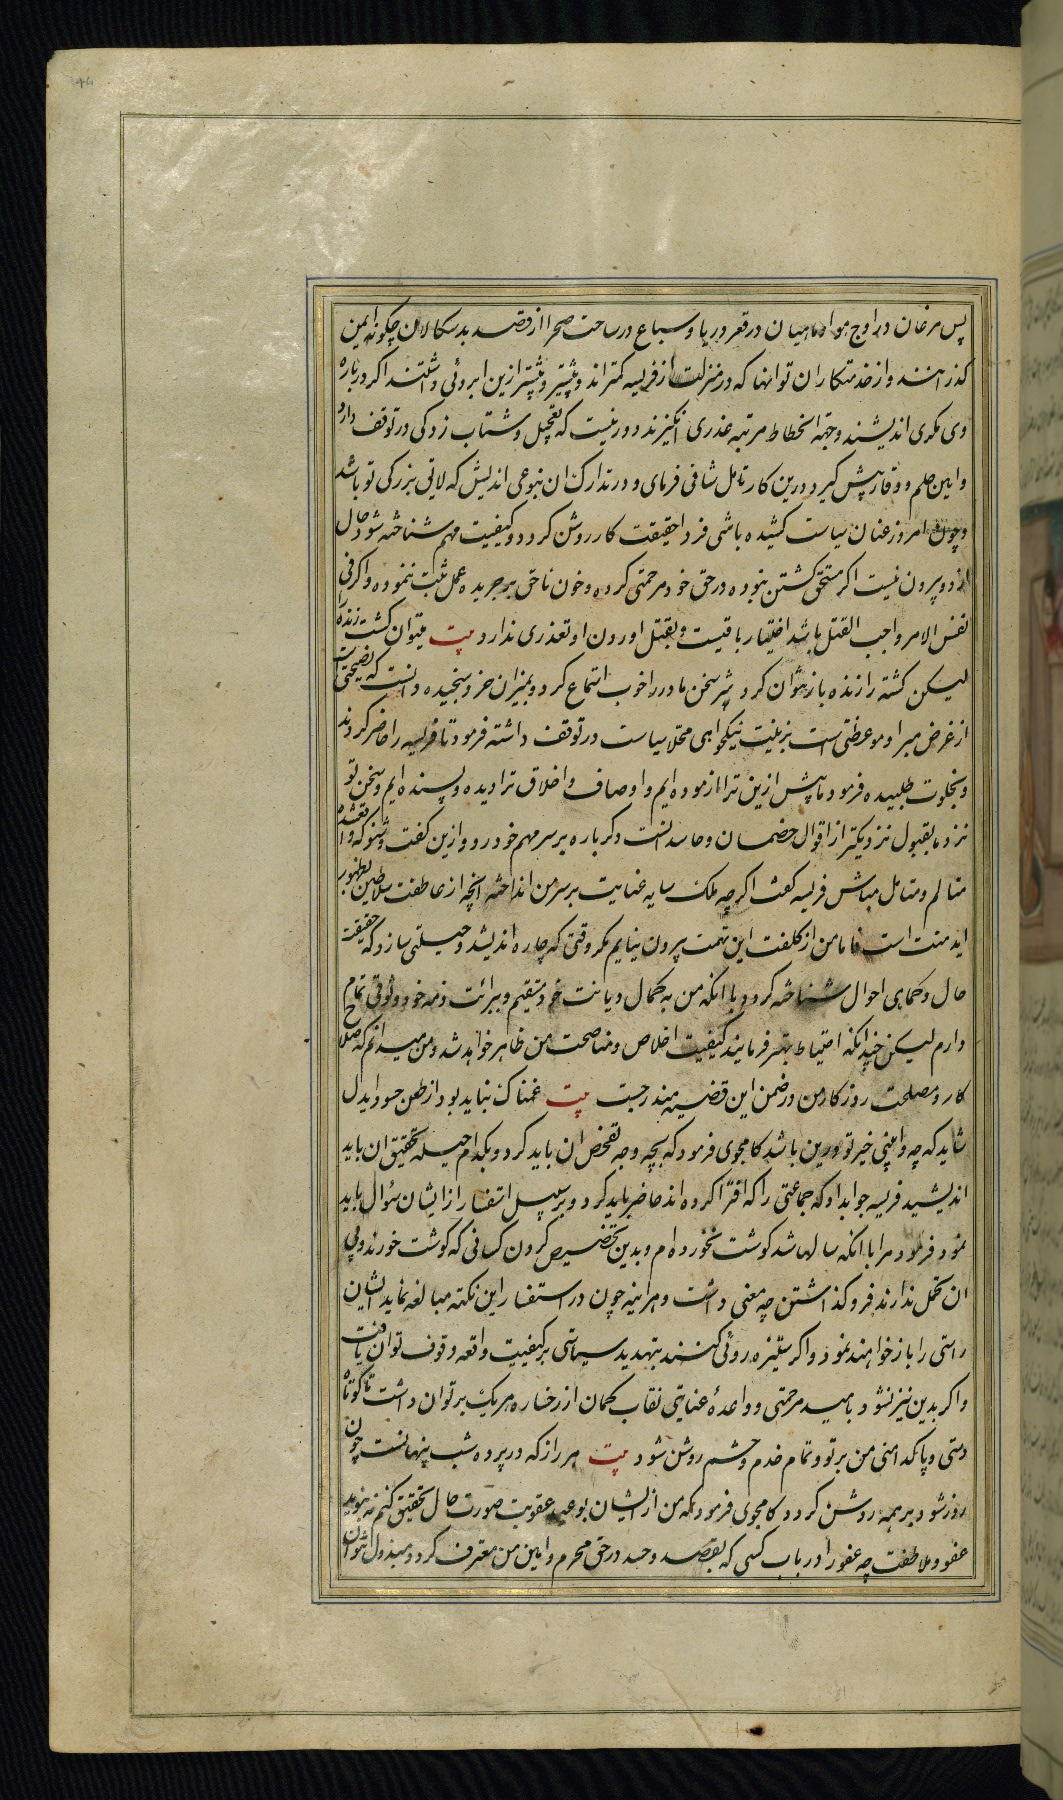 پس مرغان در اوج هوا و ماهیان در قعر دریا و سباع در ساحت صحرا از قصد بدسکالان چکونه ایمن
کذرانند و از خدمتکاران تو انها که در منزلت از فریسه کمتراند و بیشتر و پیشتر ازین ابروئی داشتند اکر درباره
وی مکری اندیشند و جهة انحطاط مرتبه عذری انکیزند دور نیست که تعجیل و شتاب زدکی در توقف دارد
و ایین حلم و وقار پیش کیرد درین کار تامل شافی فرمای و در تدارک ان بنوعی اندیش که لایق بزرکی تو باشد
و چون امروز عنان سیاست کشیده باشی فردا حقیقت کار روشن کردد و کیفیت مهم شناخته شود حال
از دو بیرون نیست اکر مستحق کشتن نبوده در حق خود مرحمتی کرده و خون ناحق بر جریده عمل ثبت ننموده و اکر فی
نفس الامر واجب القتل باشد اختیار باقیست و بقتل اوردن او تعذری ندارد بیت میتوان کشت زنده را
لیکن کشته را زنده باز نتوان کرد شیر سخن مادر را خوب استماع کرد و بمیزان خرد سنجیده دانست که نصیحتی است
از غرض مبرا و موعظتی است بزینت نیکخواهی محلا سیاست در توقف داشته فرمود تا فریسه را حاضر کردند
و بخلوت طلبیده فرمود ما پیش ازین ترا ازموده ایم و اوصاف و اخلاق ترا دیده و پسنده ایم و سخن تو
نزد ما بقبول نزدیکتر از اقوال خصمان و حاسدانست دکر باره بر سر مهم خود رو و ازین کفت و شنو که واقعشده
متالم و متامل مباش فریسه کفت اکرچه ملک سایه عنایت بر سر من انداخته انچه از عاطفت سلاطین بظهور
اید منت است فاما من از کلفت این تهمت بیرون نیایم مکر وقتی که چاره اندیشد و حیلتی سازد که حقیقت
حال و کماهی احوال شناخته کردد با انکه من به کمال دیانت خود مستقیم و ببرائت ذمه خود وثوقی تمام
دارم لیکن چندانکه احتیاط بیشتر فرمایند کیفیت اخلاص و مناصحت من ظاهر خواهد شد و من میدانم که صلاح
کار و مصلحت روزکار من در ضمن این قضیه مندرجست بیت غمناک نباید بود از طعن حسود ایدل
شاید که چو وابینی خیر تو درین باشد کامجوی فرمود که بچه وجه تفحص ان باید کرد و بکدام حیله تحقیق ان باید
اندیشید فریسه جواب داد که جماعتی را که افترا کرده اند حاضر باید کرد و بر سبیل استفسار از ایشان سؤال باید
نمود فرمود مرا با انکه سالها شد کوشت نخورده ام و بدین تخصیص کردن کسانی که کوشت خورند و بی
ان تحمل ندارند فروکذاشتن چه معنی داشت و هراینه چون در استفسار این نکته مبالغه نماید ایشان
راستی را باز خواهند نمود و اکر ستیزه روئی کنند بتهدید سیاستی بر کیفیت واقعه وقوف توان یافت
و اکر بدین نیز نشود بامید مرحمتی و واعدهٔ عنایتی نقاب کمان از رخساره هر یک بر توان داشت تا کوتاه
دستی و پاکدامنی من بر تو و تمام خدم و حشم روشن شود بیت هر راز که در پرده شب پنهانست چون
روز شود بر همه روشن کردد کامجوی فرمود که من از ایشان بوعید عقوبت صورت حال تحقیق کنم نه بنوید
عفو و ملاطفت چه عفو را در باب کسی که بقصد و حسد در حق محرم و امین من معترف کردد مبذول نتوان